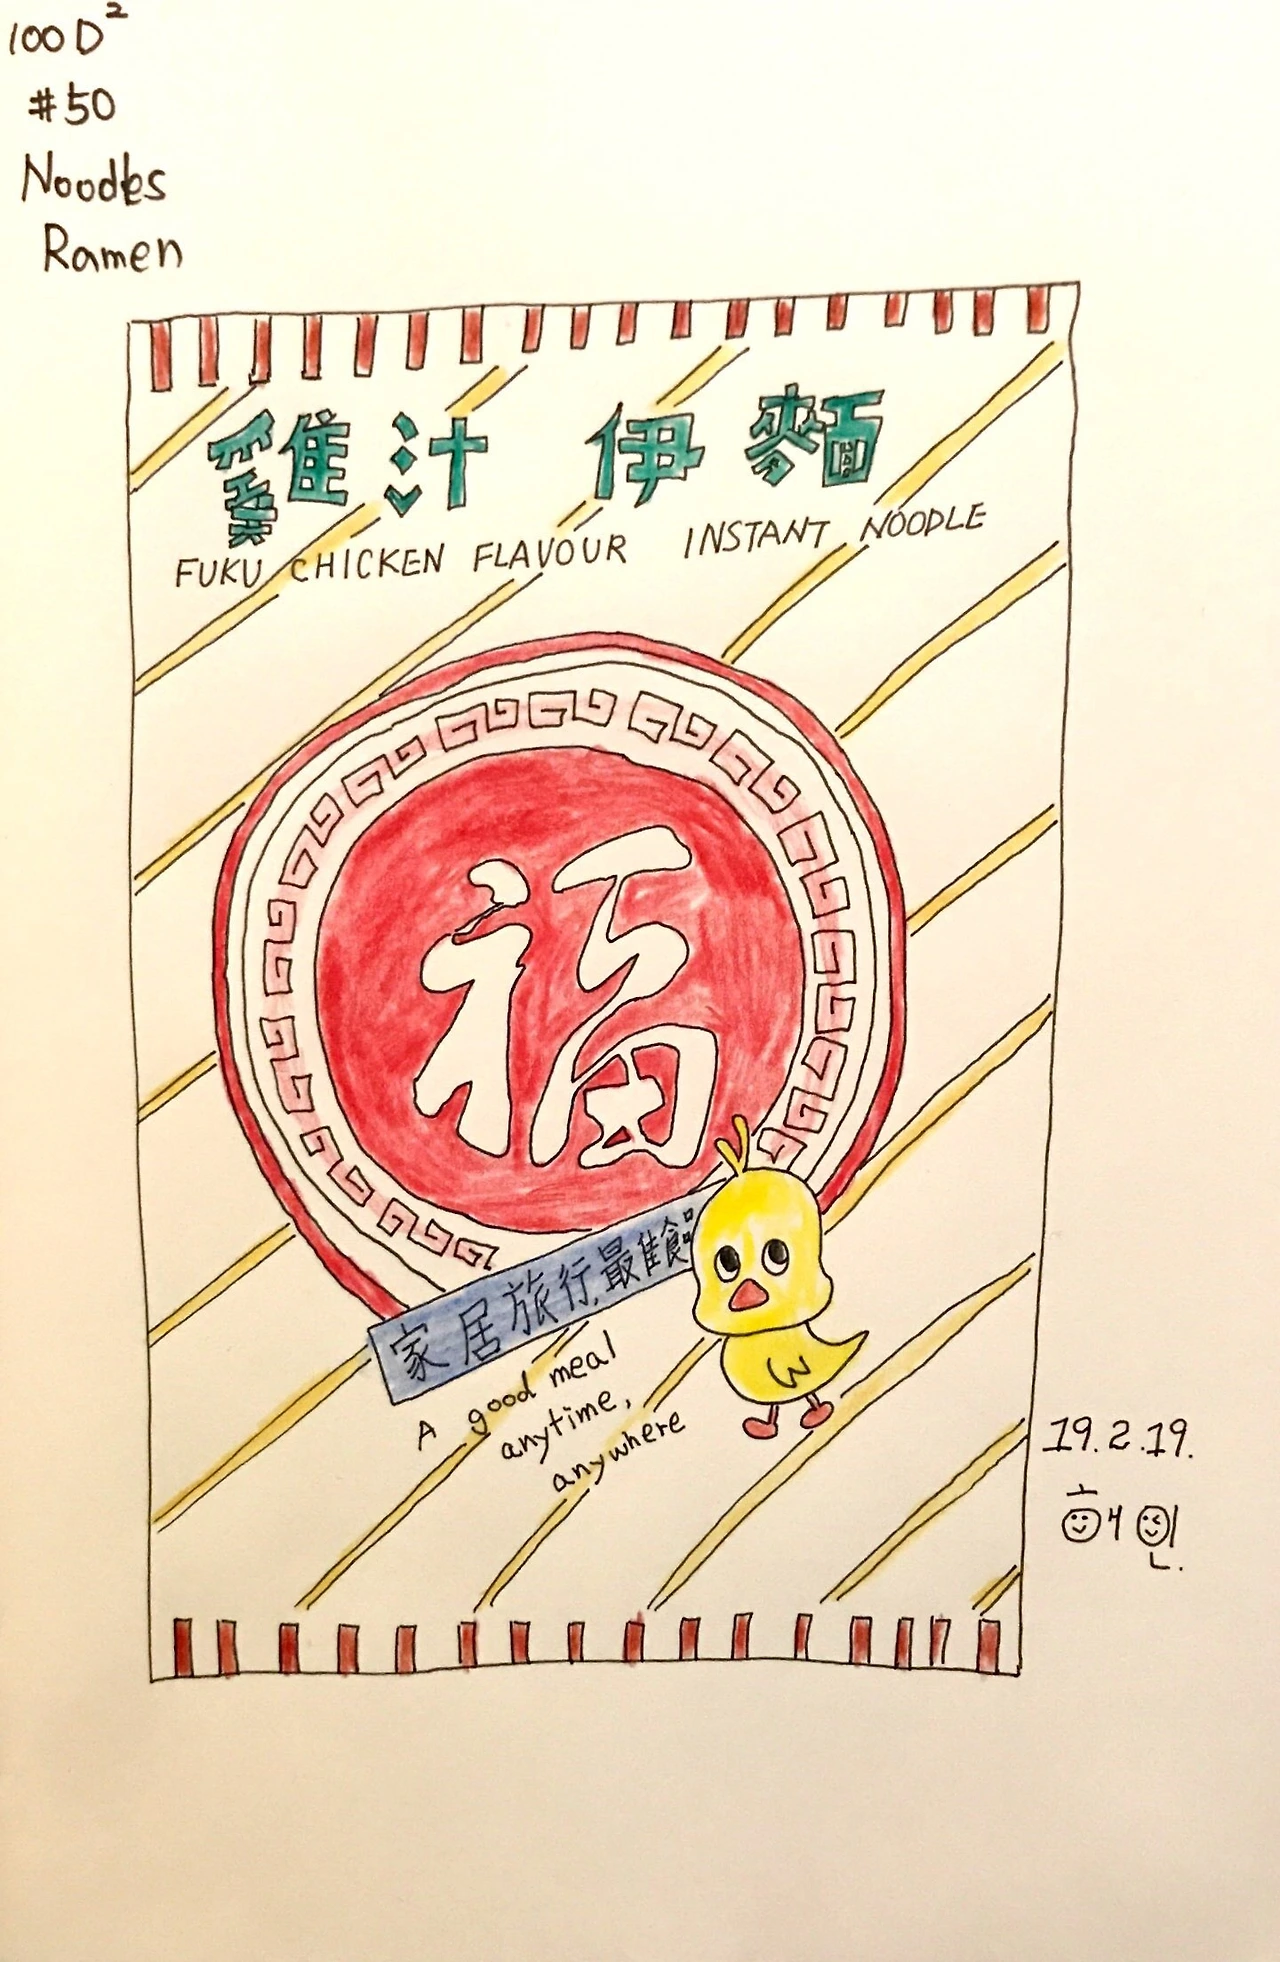 100D²
#50
Noodles
Ramen
雞汁 伊麵
FUKU CHICKEN FLAVOUR INSTANT NOODLE
福
家居旅行,最佳食品
A good meal
anytime,
anywhere
19.2.19.
혜인.